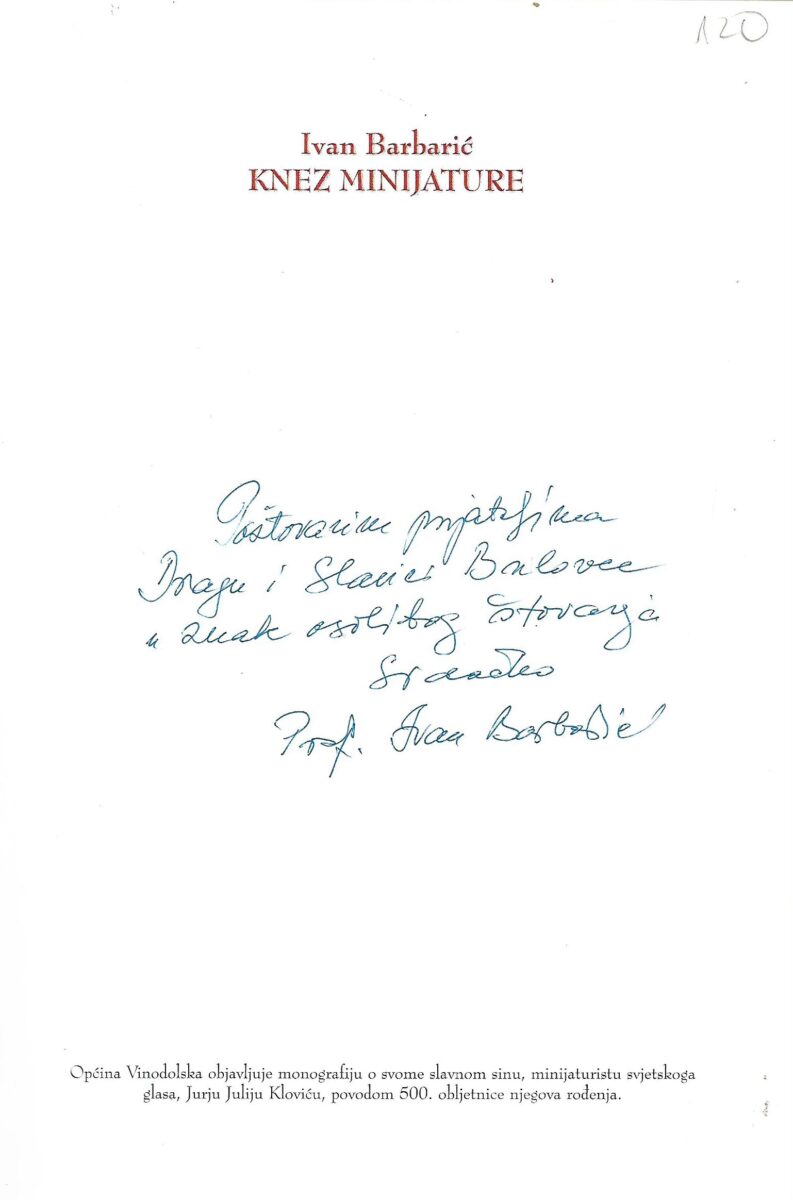 120
Ivan Barbarić
KNEZ MINIJATURE
Poštovanim prijateljima
Dragu i Slavici
u znak osobitog štovanja
Srdačno
Prof. Ivan Barbarić
Općina Vinodolska objavljuje monografiju o svome slavnom sinu, minijaturistu svjetskoga
glasa, Jurju Juliju Kloviću, povodom 500. obljetnice njegova rođenja.